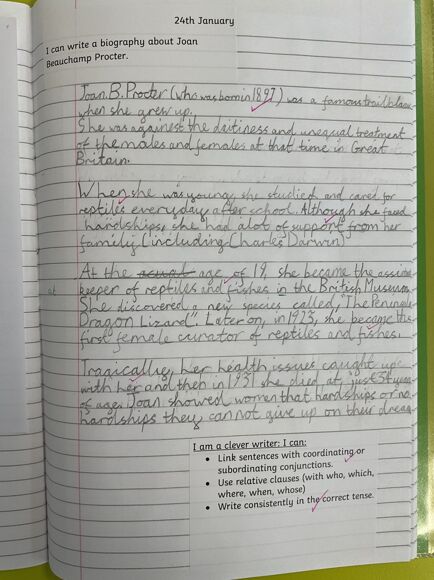 24th January
I can write a biography about Joan
Beauchamp Procter.
Joan. B. Procter (who was born in 1897) was a famous trail blaze
when she grew up.
She was against the and unequal treatment
of the males and females at that time in Great
Britain.
When she was young, she studied and cared for
reptiles everyday after school. Although she faced
hardships, she had alot of support from her
family (including Charles Darwin)
at
At the age of 19, she became the
keeper of reptiles and fishes in the British Museum.
She discovered a new species called, "The
Dragon Lizard". Later on, in 1923, she became the
first female curator of reptiles and fishes.
Tragically, her health issues caught up
with her and then in 1931 she died at just 34 years
of age. Joan showed women that hardships or no
hardships they can not give up on their dream
I am a clever writer: I can:
• Link sentences with coordinating or
subordinating conjunctions.
• Use relative clauses (with who, which,
where, when, whose)
• Write consistently in the correct tense.